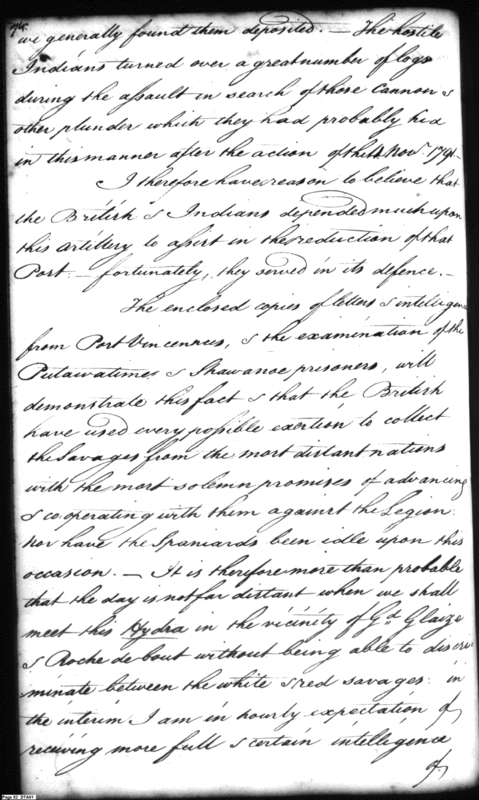 we generally found them deposited. — The hostile
Indians turned over a great number of logs
during the assault in search of those Cannon &
other plunder which they had probably hid
in this manner after the action of the 4 Novr. 1791 —
I therefore have reason to believe that
the British & Indians depended much upon
this artillery to assist in the reduction of that
Post — fortunately, they served in its defence. —
The enclosed copies of letters & intelligence
from Port Vincennes, & the examination of the
Putawatimes & Shawanoe prisoners, will
demonstrate this fact & that the British
have used every possible exertion to collect
the Savages from the most distant nations
with the most solemn promises of advancing
& co,operating with them against the Legion.
nor have the Spaniards been idle upon this
occasion. — It is therefore more than probable
that the day is not far distant when we shall
meet this Hydra in the vicinity of Gd. Glaize
& Roche de bout without being able to discri-
minate between the white & red savages: in
the interim I am in hourly expectation of
receiving more full & certain intelligence
of